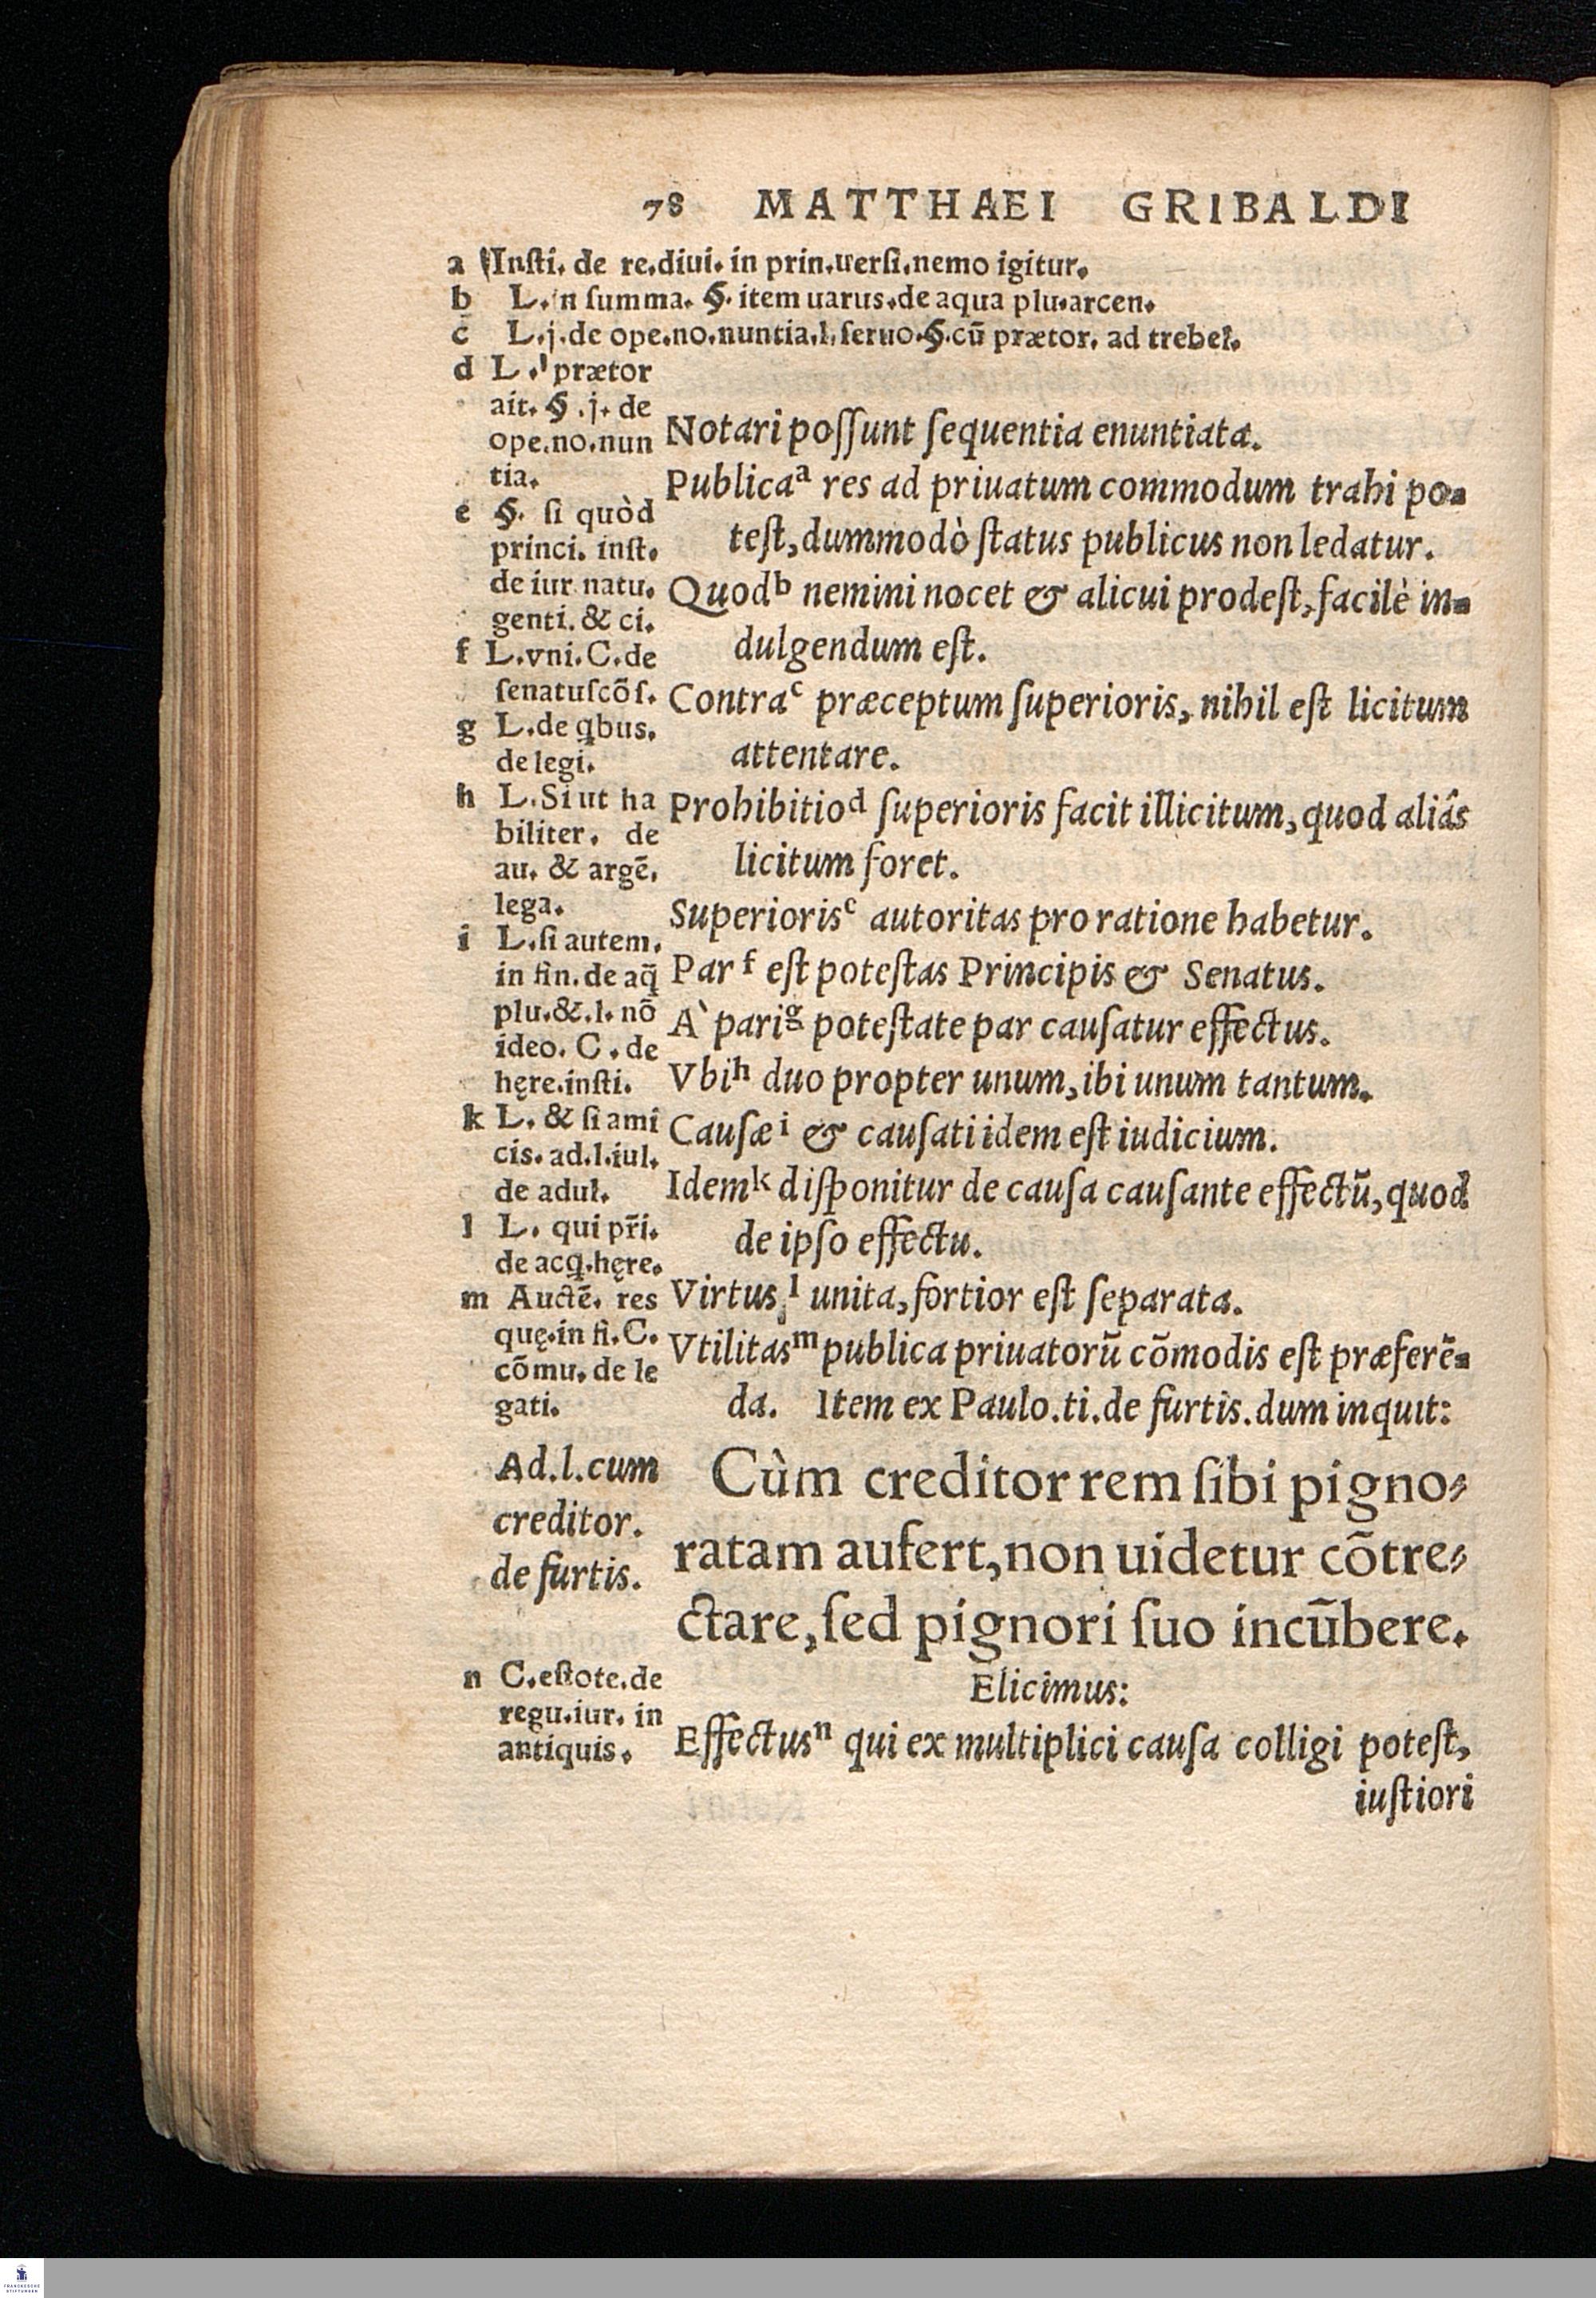 78 MATTHAEI GRIBALDI
a Insti. de re.diui. in prin.uersi.nemo igitur.
b L.in summa. §. item uarus.de aqua plu.arcen.
c L.j.de ope.no.nuntia.l.seruo.§.cū prætor. ad trebel.
d L. prætor
ait. §.j. de
ope.no.nun
tia.
e §. si quòd
princi. inst.
de iur natu.
genti. & ci.
f L.vni.C.de
senatuscōs.
g L.de qbus.
de legi.
h L.Si ut ha
biliter. de
au. & argē.
lega.
i L.si autem.
in fin.de aq̄
plu.&.l.nō
ideo. C.de
hęre.insti.
k L. & si ami
cis. ad.l.iul.
de adul.
l L. qui pr̄i.
de acq.hęre.
m Auctē. res
quę.in fi.C.
cōmu. de le
gati.
Notari possunt sequentia enuntiata.
Publicaᵃ res ad priuatum commodum trahi po-
test, dummodò status publicus non ledatur.
Quodᵇ nemini nocet & alicui prodest, facilè in-
dulgendum est.
Contraᶜ præceptum superioris, nihil est licitum
attentare.
Prohibitioᵈ superioris facit illicitum, quod aliâs
licitum foret.
Superiorisᶜ autoritas pro ratione habetur.
Par ᶠ est potestas Principis & Senatus.
A` pariᵍ potestate par causatur effectus.
Vbiʰ duo propter unum, ibi unum tantum.
Causæⁱ & causati idem est iudicium.
Idemᵏ disponitur de causa causante effectū, quod
de ipso effectu.
Virtus,ˡ unita, fortior est separata.
Vtilitasᵐ publica priuatorū cōmodis est præferē-
da. Item ex Paulo.ti.de furtis.dum inquit:
Ad.l.cum
creditor.
de furtis.
Cùm creditor rem sibi pigno-
ratam aufert, non uidetur cōtre-
ctare, sed pignori suo incūbere.
n C.estote.de
regu.iur. in
antiquis.
Elicimus:
Effectusⁿ qui ex multiplici causa colligi potest,
iustiori
FRANCKESCHE
STIFTUNGEN